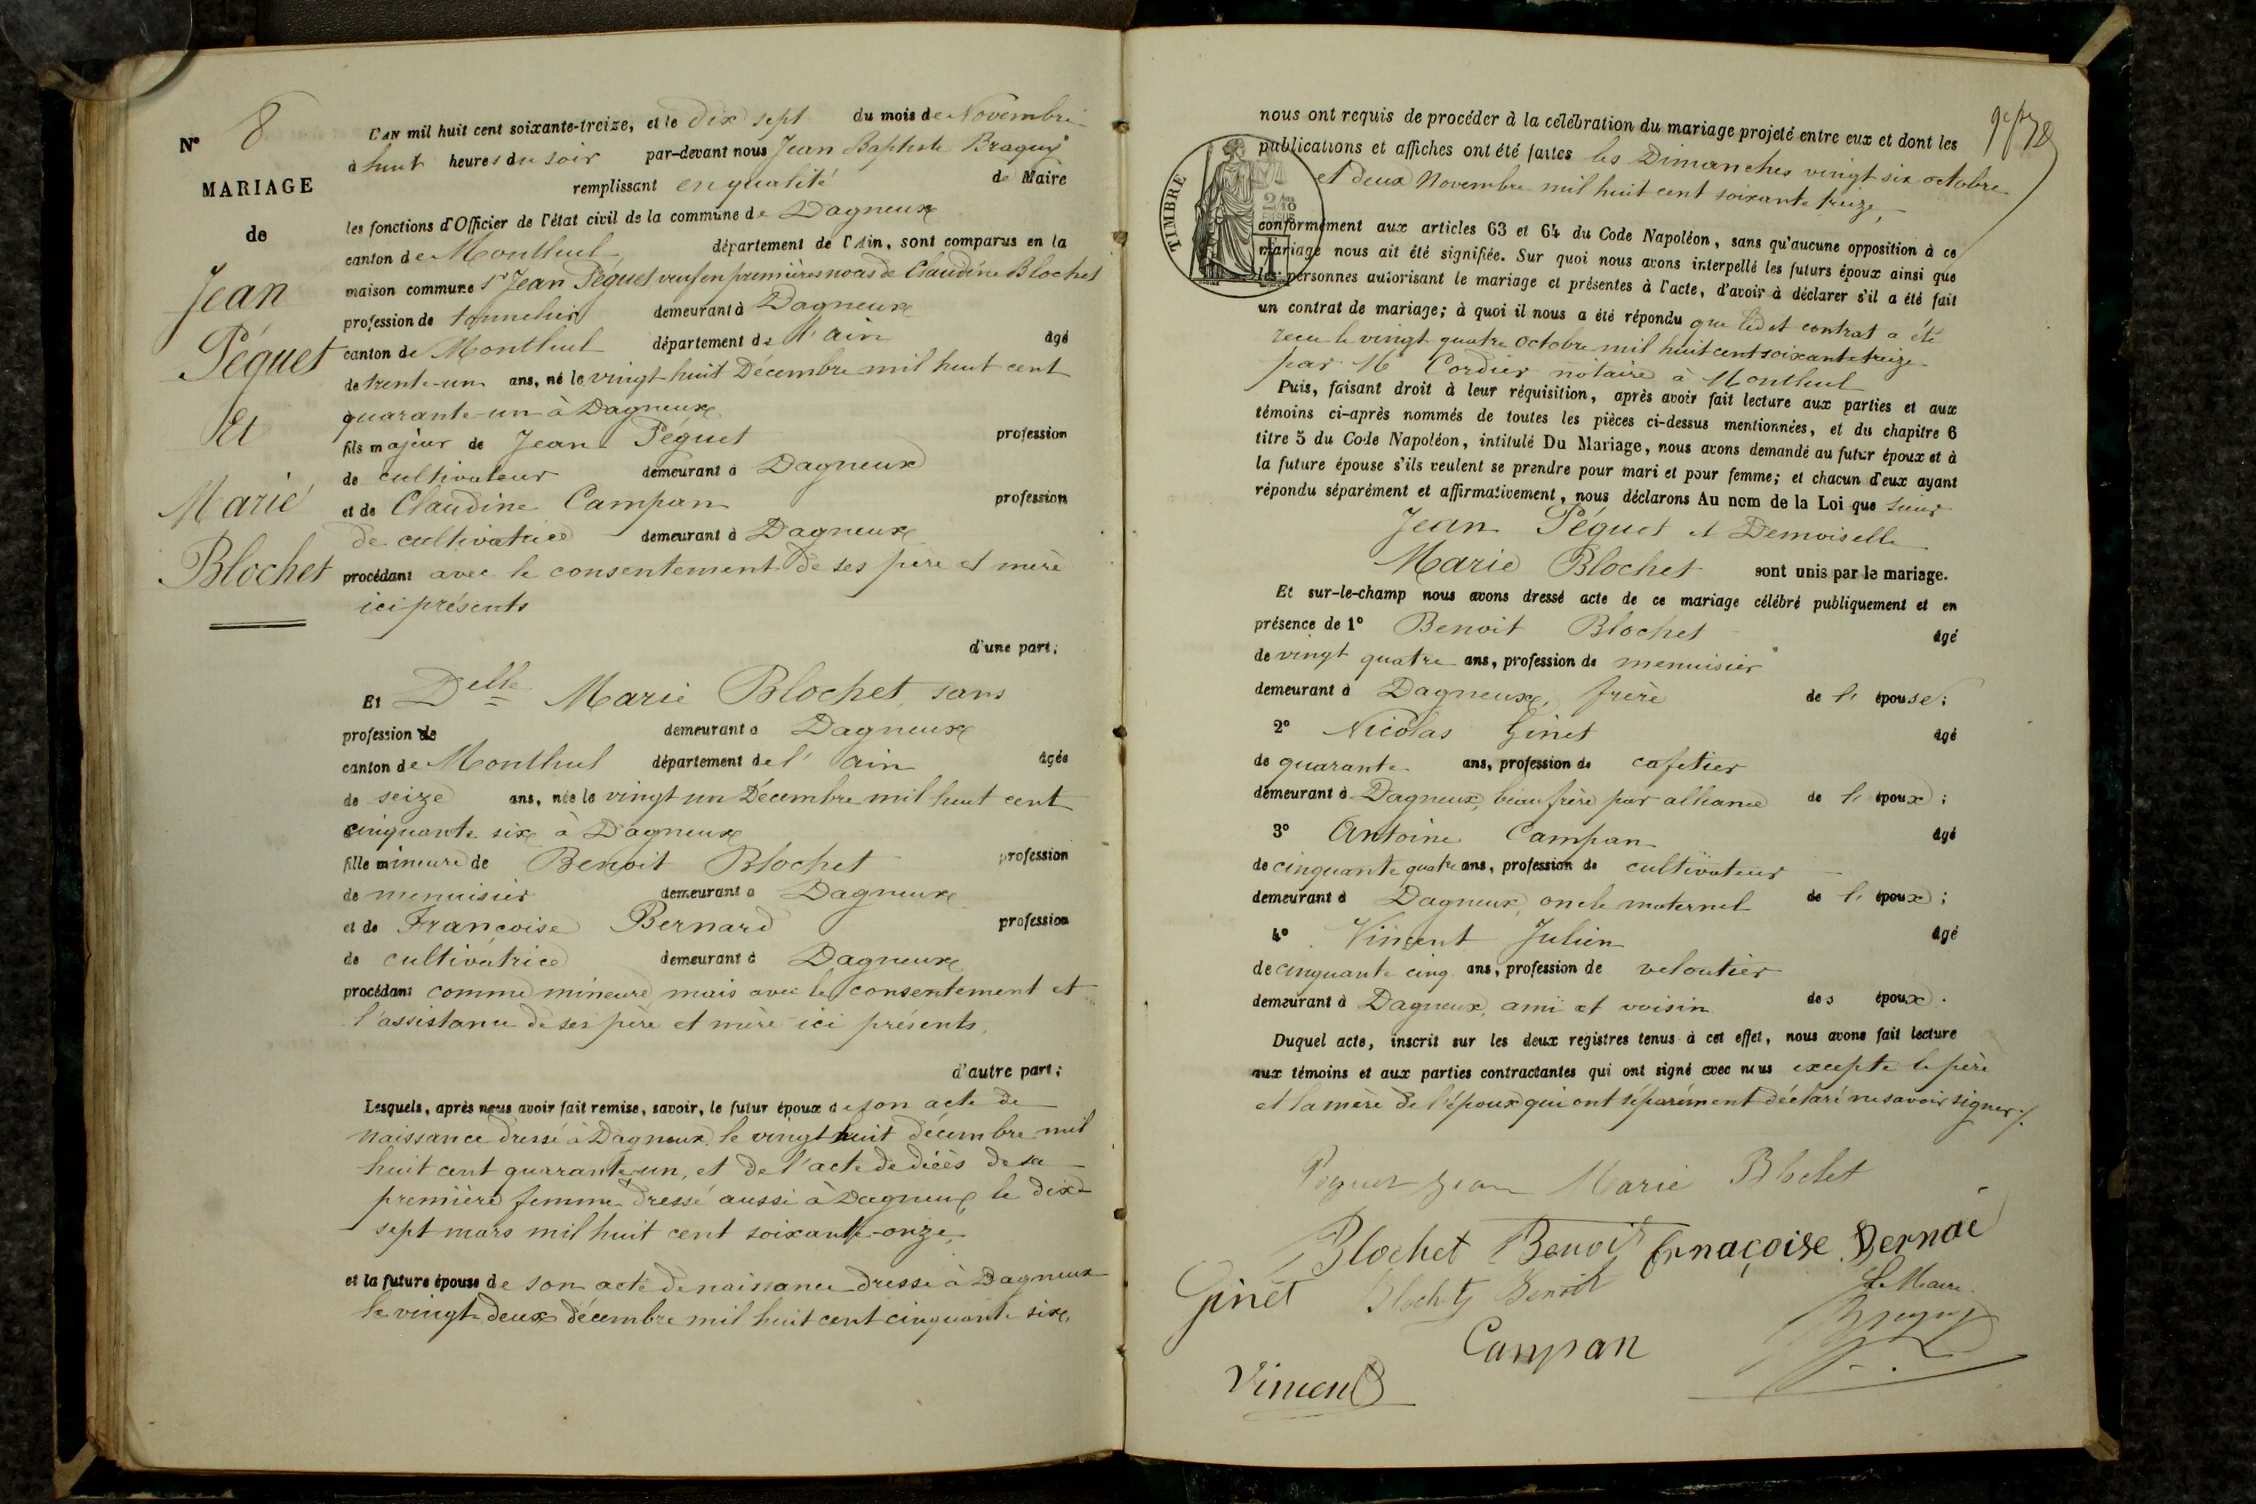 N° 8
MARIAGE
de
Jean
Péquet
Et
Marie
Blochet
L'AN mil huit cent soixante-treize, et le dix sept du mois de Novembre
à huit heures du soir par-devant nous Jean Baptiste
remplissant en qualité de Maire
les fonctions d'Officier de l'état civil de la commune de Dagneux
canton de Montluel département de l'Ain, sont comparus en la
maison commune Sr Jean Péquet veuf en premières noces de Claudine Blochet
profession de tonnelier demeurant à Dagneux
canton de Montluel département de l'ain âgé
de trente-un ans, né le vingt-huit Décembre mil huit cent
quarante-un à Dagneux
fils majeur de Jean Péquet profession
de cultivateur demeurant à Dagneux
et de Claudine Campan profession
de cultivatrice demeurant à Dagneux
procédant avec le consentement de ses père et mère
ici présents
d'une part;
Et Delle Marie Blochet, sans
profession de demeurant à Dagneux
canton de Montluel département de l'ain âgée
de seize ans, née le vingt un Décembre mil huit cent
cinquante six à Dagneux
fille mineure de Benoit Blochet profession
de menuisier demeurant à Dagneux
et de Françoise Bernard profession
de cultivatrice demeurant à Dagneux
procédant comme mineure mais avec le consentement et
l'assistance de ses père et mère ici présents.
d'autre part;
Lesquels, après nous avoir fait remise, savoir, le futur époux de son acte de
naissance dressé à Dagneux le vingt huit décembre mil
huit cent quarante-un, et de l'acte de décès de sa
première femme dressé aussi à Dagneux le dix-
sept mars mil huit cent soixante-onze,
et la future épouse de son acte de naissance dressé à Dagneux
le vingt-deux décembre mil huit cent cinquante six,
nous ont requis de procéder à la célébration du mariage projeté entre eux et dont les
publications et affiches ont été faites les Dimanches vingt six octobre
et deux Novembre mil huit cent soixante treize,
TIMBRE
conformément aux articles 63 et 64 du Code Napoléon, sans qu'aucune opposition à ce
mariage nous ait été signifiée. Sur quoi nous avons interpellé les futurs époux ainsi que
les personnes autorisant le mariage et présentes à l'acte, d'avoir à déclarer s'il a été fait
un contrat de mariage; à quoi il nous a été répondu que ledit contrat a été
reçu le vingt quatre octobre mil huit cent soixante treize
par Me Cordier notaire à Montluel
Puis, faisant droit à leur réquisition, après avoir fait lecture aux parties et aux
témoins ci-après nommés de toutes les pièces ci-dessus mentionnées, et du chapitre 6
titre 5 du Code Napoléon, intitulé Du Mariage, nous avons demandé au futur époux et à
la future épouse s'ils veulent se prendre pour mari et pour femme; et chacun d'eux ayant
répondu séparément et affirmativement, nous déclarons Au nom de la Loi que sieur
Jean Péquet et Demoiselle
Marie Blochet sont unis par le mariage.
Et sur-le-champ nous avons dressé acte de ce mariage célébré publiquement et en
présence de 1° Benoit Blochet âgé
de vingt quatre ans, profession de menuisier
demeurant à Dagneux, frère de l'épouse;
2° Nicolas Ginet âgé
de quarante ans, profession de cafetier
demeurant à Dagneux, beau frère par alliance de l'époux;
3° Antoine Campan âgé
de cinquante quatre ans, profession de cultivateur
demeurant à Dagneux, oncle maternel de l'époux;
4° Vincent Julien âgé
de cinquante cinq ans, profession de veloutier
demeurant à Dagneux, ami et voisin des époux.
Duquel acte, inscrit sur les deux registres tenus à cet effet, nous avons fait lecture
aux témoins et aux parties contractantes qui ont signé avec nous excepté le père
et la mère de l'époux qui ont séparément déclaré ne savoir signer./.
Péquet Jean Marie Blochet
Blochet Benoit Frnaçoise Bernac
Ginet Blochet Benoit Le Maire
Campan
Vincent